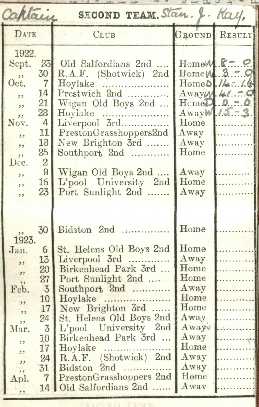 Captain SECOND TEAM. Stan. J. Kay.
DATE CLUB GROUND RESULT
1922.
Sept. 23 Old Salfordians 2nd .... Home W 8-0
,, 30 R.A.F. (Shotwick) 2nd Home W 8-0
Oct. 7 Hoylake .................. Home
,, 14 Prestwich 2nd .......... Away
,, 21 Wigan Old Boys 2nd .... Home D 0-0
,, 28 Hoylake .................. Away W 15-3
Nov. 4 Liverpool 3rd............ Home
,, 11 PrestonGrasshoppers2nd Away
,, 18 New Brighton 3rd........ Away
,, 25 Southport 2nd............ Home
Dec. 2
,, 9 Wigan Old Boys 2nd .... Away
,, 16 L'pool University 2nd Home
,, 23 Port Sunlight 2nd ........ Away
,, 30 Bidston 2nd .............. Home
1923.
Jan. 6 St. Helens Old Boys 2nd Home
,, 13 Liverpool 3rd............ Away
,, 20 Birkenhead Park 3rd .... Home
,, 27 Port Sunlight 2nd ........ Home
Feb. 3 Southport 2nd............ Away
,, 10 Hoylake .................. Home
,, 17 New Brighton 3rd........ Home
,, 24 St. Helens Old Boys 2nd Away
Mar. 3 L'pool University 2nd Away
,, 10 Birkenhead Park 3rd .... Away
,, 17 Hoylake .................. Home
,, 24 R.A.F. (Shotwick) 2nd Away
,, 31 Bidston 2nd .............. Away
Apl. 7 PrestonGrasshoppers 2nd Home
,, 14 Old Salfordians 2nd ...... Away